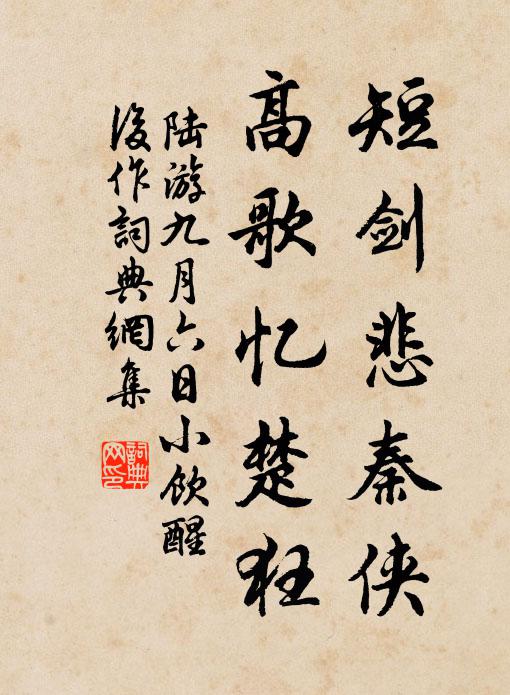 短剑悲秦侠
高歌忆楚狂
陆游九月六日小饮醒
后作詞典網集
詞典
网印